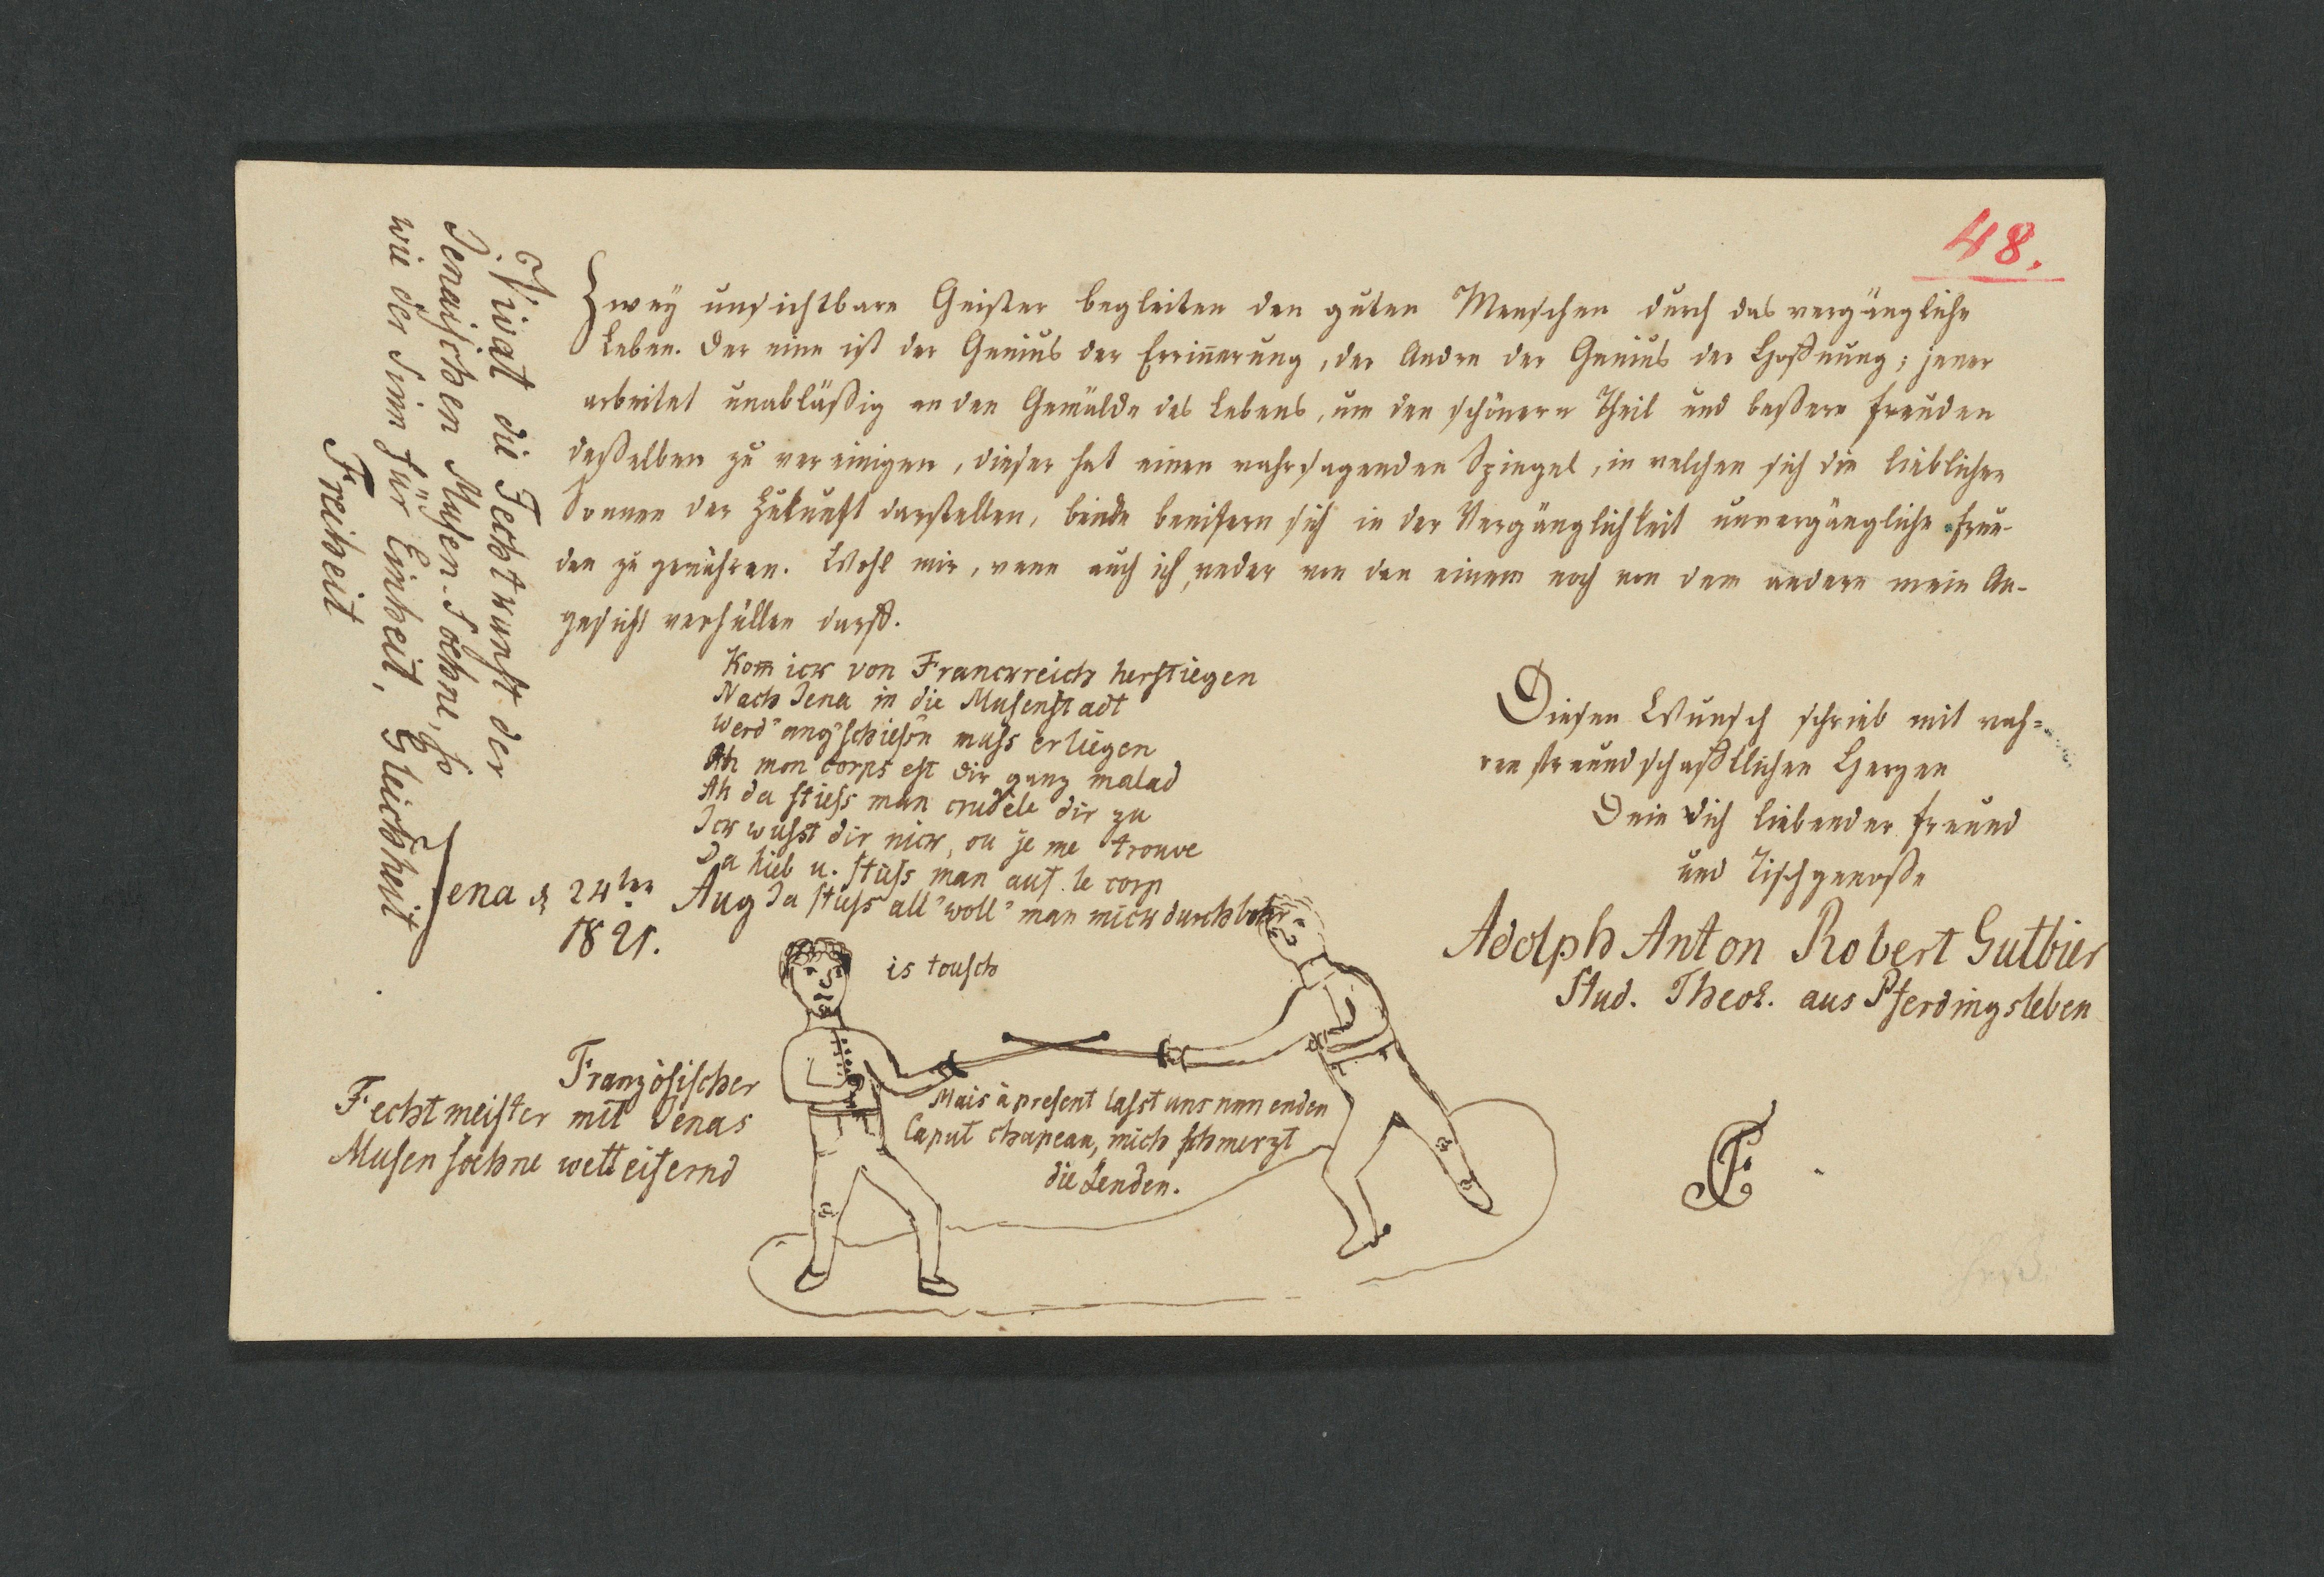 48.
Zwey unsichtbare Geister begleiten den guten Menschen durch das vergängliche
Leben. Der eine ist der Genius der Erinnerung, der Andre der Genius der Hoffnung; jener
arbeitet unabläßig an den Gemälde des Lebens, um den schönern Theil und beßere Freuden
deßelben zu vereinigen, dieser hat einen wahrsagenden Spiegel, in welchen sich die lieblichen
Sonnen der Zukunft darstellen, beide beeifern sich in der Vergänglichkeit unvergängliche Freu-
den zu gewähren. Wohl mir, wenn auch ich weder von den einem noch von dem andern mein An-
gesicht verhüllen darf.
Vivat die Fechtkunst der
Jenaischen Musen-Soehne, so
wie der Sinn für Einheit, Gleichheit
Freiheit
Kom̅ ick von Franckreich herstiegen
Nach Jena in die Musenstadt
Werd' ang'schiess'n muss erliegen
Ah mon corps est dir ganz malad
Ah da stiess man crudele dir zu
Ick wusst dir nick, ou je me trouve
Da hieb u. stiess man auf le corp
Da stiess all' woll' man mick durchbohr
Jena d 24ten Aug
1821.
is tousch
Mais à present lasst uns nun enden
Caput chapeau, mich schmerzt
die Lenden.
Französischer
Fechtmeister mit Jenas
Musensoehne wetteifernd
Diesen Wunsch schrieb mit wah=
ren freundschaftlichen Herzen
Dein dich liebender Freund
und Tischgenoße
Adolph Anton Robert Gutbier
Stud. Theol. aus Pferdingsleben